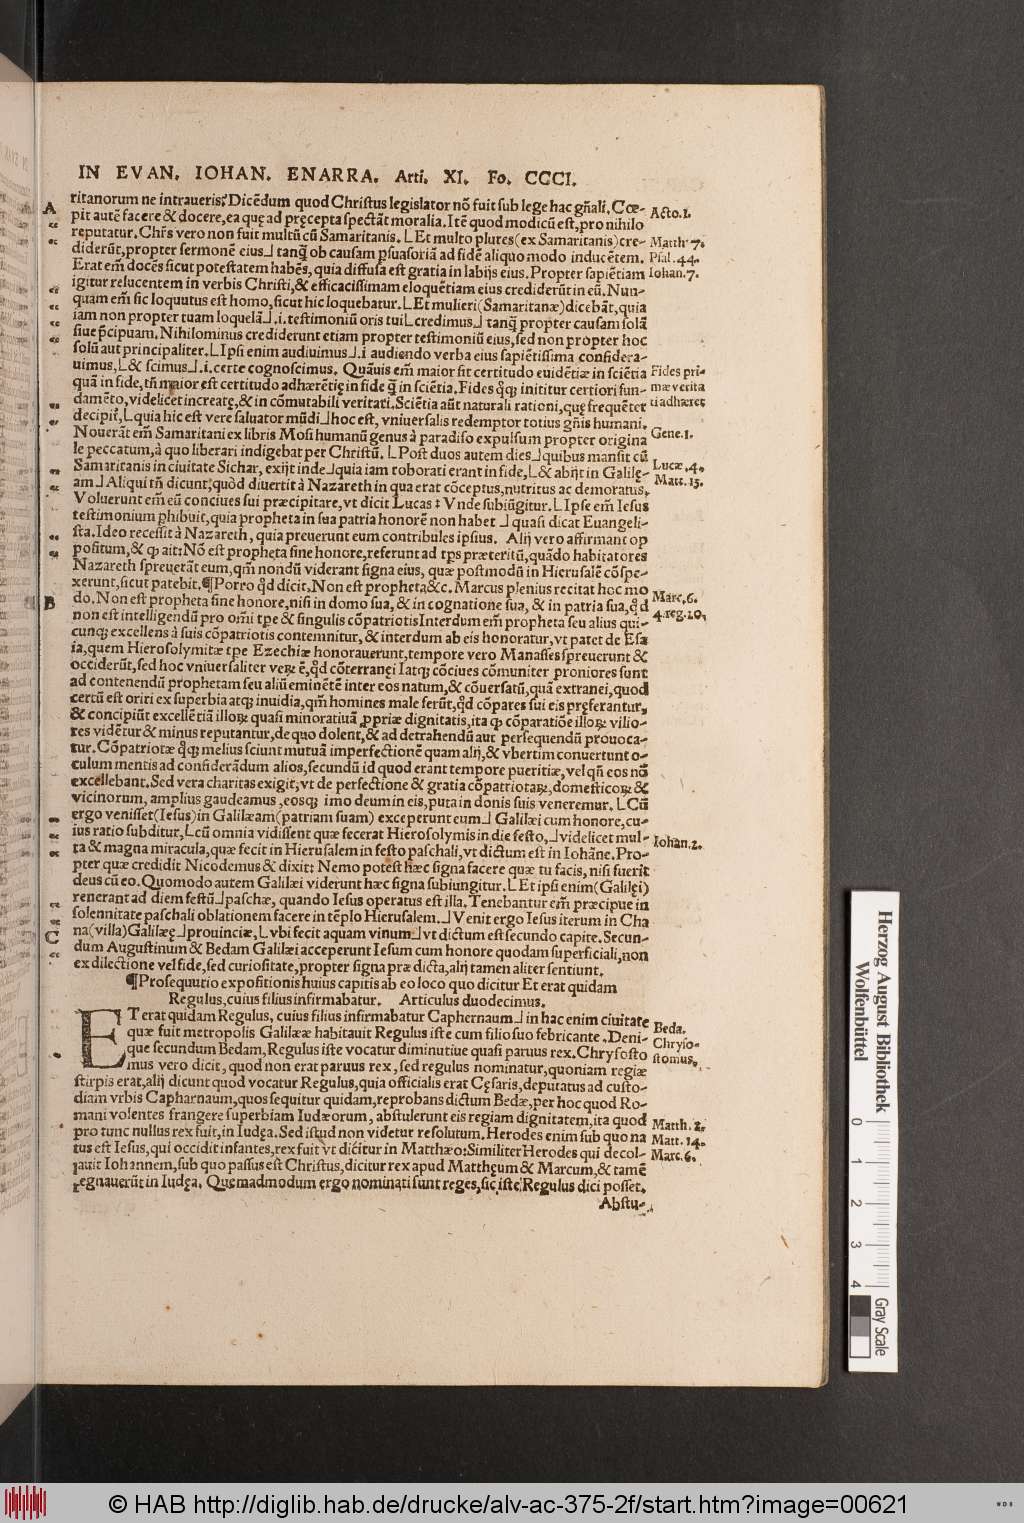 IN EVAN. IOHAN. ENARRA. Arti. XI. Fo. CCCI.
A
ritanorum ne intraueris? Dicēdum quod Christus legislator nō fuit sub lege hac gñali. Cœ-
pit autē facere & docere, ea quę ad pręcepta spectāt moralia. Itē quod modicū est, pro nihilo
Acto.1.
reputatur. Chr̄s vero non fuit multū cū Samaritanis. ⌊Et multo plures (ex Samaritanis) cre-
Matth. 7.
diderūt, propter sermonē eius⌋ tanq̄ ob causam ꝑsuasoriā ad fidē aliquo modo inducētem.
Psal. 44.
Erat em̄ docēs sicut potestatem habēs, quia diffusa est gratia in labijs eius. Propter sapiētiam
Iohan. 7.
igitur relucentem in verbis Christi, & efficacissimam eloquētiam eius crediderūt in eū. Nun-
quam em̄ sic loquutus est homo, sicut hic loquebatur. ⌊Et mulieri (Samaritanæ) dicebāt, quia
iam non propter tuam loquelā⌋ .i. testimoniū oris tui ⌊credimus⌋ tanq̄ propter causam solā
siue p̄cipuam. Nihilominus crediderunt etiam propter testimoniū eius, sed non propter hoc
solū aut principaliter. ⌊Ipsi enim audiuimus⌋ .i audiendo verba eius sapiētissima considera-
uimus, ⌊& scimus⌋ .i. certe cognoscimus. Quāuis em̄ maior sit certitudo euidētiæ in sciētia
Fides pri-
quā in fide, tñ maior est certitudo adhærētię in fide q̄ in sciētia. Fides q̄ꝗ; inititur certiori fun-
mæ verita
damēto, videlicet increatę, & in cōmutabili veritati. Sciētia aūt naturali rationi, quę frequēter
ti adhæret
decipit, ⌊quia hic est vere saluator mūdi⌋ hoc est, vniuersalis redemptor totius gñis humani.
Nouerāt em̄ Samaritani ex libris Mosi humanū genus à paradiso expulsum propter origina
Gene.1.
le peccatum, à quo liberari indigebat per Christū. ⌊Post duos autem dies⌋ quibus mansit cū
Samaritanis in ciuitate Sichar, exijt inde⌋ quia iam roborati erant in fide, ⌊& abijt in Galilę-
Lucæ. 4.
am⌋ Aliqui tñ dicunt, quòd diuertit à Nazareth in qua erat cōceptus, nutritus ac demoratus.
Matt. 13.
Voluerunt em̄ eū conciues sui præcipitare, vt dicit Lucas: Vnde subiūgitur. ⌊Ipse em̄ Iesus
testimonium phibuit, quia propheta in sua patria honorē non habet⌋ quasi dicat Euangeli-
sta. Ideo recessit à Nazareth, quia preuerunt eum contribules ipsius. Alij vero affirmant op
positum, & ꝙ ait: Nō est propheta sine honore, referunt ad tps præteritū, quādo habitatores
Nazareth spreuerāt eum, qm̄ nondū viderant signa eius, quæ postmodū in Hierusalē cōspe-
xerunt, sicut patebit. ¶Porro q̄d dicit. Non est propheta &c. Marcus plenius recitat hoc mo
B
do. Non est propheta sine honore, nisi in domo sua, & in cognatione sua, & in patria sua, q̄d
Marc. 6.
non est intelligendū pro om̄i tpe & singulis cōpatriotis Interdum em̄ propheta seu alius qui-
4. reg. 20.
cunq; excellens à suis cōpatriotis contemnitur, & interdum ab eis honoratur, vt patet de Esa
ia, quem Hierosolymitæ tpe Ezechiæ honorauerunt, tempore vero Manasses spreuerunt &
occiderūt, sed hoc vniuersaliter veꝝ ē, q̄d cōterranei Iatq; cōciues cōmuniter proniores sunt
ad contenendū prophetam seu aliū eminētē inter eos natum, & cōuersatū, quā extranei, quod
certū est oriri ex superbia atq; inuidia, qm̄ homines male ferūt, q̄d cōpares sui eis pręferantur,
& concipiūt excellētiā illoꝝ quasi minoratiuā ꝓpriæ dignitatis, ita ꝙ cōparatiōe illoꝝ vilio-
res vidētur & minus reputantur, de quo dolent, & ad detrahendū aut persequendū prouoca-
tur. Cōpatriotæ q̄ꝗ; melius sciunt mutuā imperfectionē quam alij, & vbertim conuertunt o-
culum mentis ad considerādum alios, secundū id quod erant tempore pueritiæ, vel qñ eos nō
excellebant. Sed vera charitas exigit, vt de perfectione & gratia cōpatriotaꝝ, domesticoꝝ &
vicinorum, amplius gaudeamus, eosq; imo deum in eis, puta in donis suis veneremur. ⌊Cū
ergo venisset (Iesus) in Galilæam (patriam suam) exceperunt eum⌋ Galilæi cum honore, cu-
ius ratio subditur, ⌊cū omnia vidissent quæ fecerat Hierosolymis in die festo,⌋ videlicet mul-
Iohan. 2.
ta & magna miracula, quæ fecit in Hierusalem in festo paschali, vt dictum est in Iohāne. Pro-
pter quæ credidit Nicodemus & dixit: Nemo potest hæc signa facere quæ tu facis, nisi fuerit
deus cū eo. Quomodo autem Galilæi viderunt hæc signa subiungitur. ⌊Et ipsi enim (Galilęi)
venerant ad diem festū⌋ paschæ, quando Iesus operatus est illa. Tenebantur em̄ præcipue in
solennitate paschali oblationem facere in tēplo Hierusalem. ⌋Venit ergo Iesus iterum in Cha
C
na (villa) Galilæę⌋ prouinciæ, ⌊vbi fecit aquam vinum⌋ vt dictum est secundo capite. Secun-
dum Augustinum & Bedam Galilæi acceperunt Iesum cum honore quodam superficiali, non
ex dilectione vel fide, sed curiositate, propter signa prædicta, alij tamen aliter sentiunt.
¶Prosequutio expositionis huius capitis ab eo loco quo dicitur Et erat quidam
Regulus, cuius filius infirmabatur. Articulus duodecimus.
ET erat quidam Regulus, cuius filius infirmabatur Caphernaum⌋ in hac enim ciuitate
quæ fuit metropolis Galilææ habitauit Regulus iste cum filio suo febricante. Deni-
Beda.
que secundum Bedam, Regulus iste vocatur diminutiue quasi paruus rex. Chrysosto
Chryso-
mus vero dicit, quod non erat paruus rex, sed regulus nominatur, quoniam regiæ
stomus.
stirpis erat, alij dicunt quod vocatur Regulus, quia officialis erat Cęsaris, deputatus ad custo-
diam vrbis Capharnaum, quos sequitur quidam, reprobans dictum Bedæ, per hoc quod Ro-
mani volentes frangere superbiam Iudæorum, abstulerunt eis regiam dignitatem, ita quod
Matth. 2.
pro tunc nullus rex fuit, in Iudęa. Sed istud non videtur resolutum. Herodes enim sub quo na
Matt. 14.
tus est Iesus, qui occidit infantes, rex fuit vt dicitur in Matthæo: Similiter Herodes qui decol-
Marc. 6.
lauit Iohannem, sub quo passus est Christus, dicitur rex apud Matthęum & Marcum, & tamē
regnauerūt in Iudęa. Quemadmodum ergo nominati sunt reges, sic iste Regulus dici posset.
Abstu-
Herzog August Bibliothek
Wolfenbüttel
0 1 2 3 4
Gray Scale
© HAB http://diglib.hab.de/drucke/alv-ac-375-2f/start.htm?image=00621